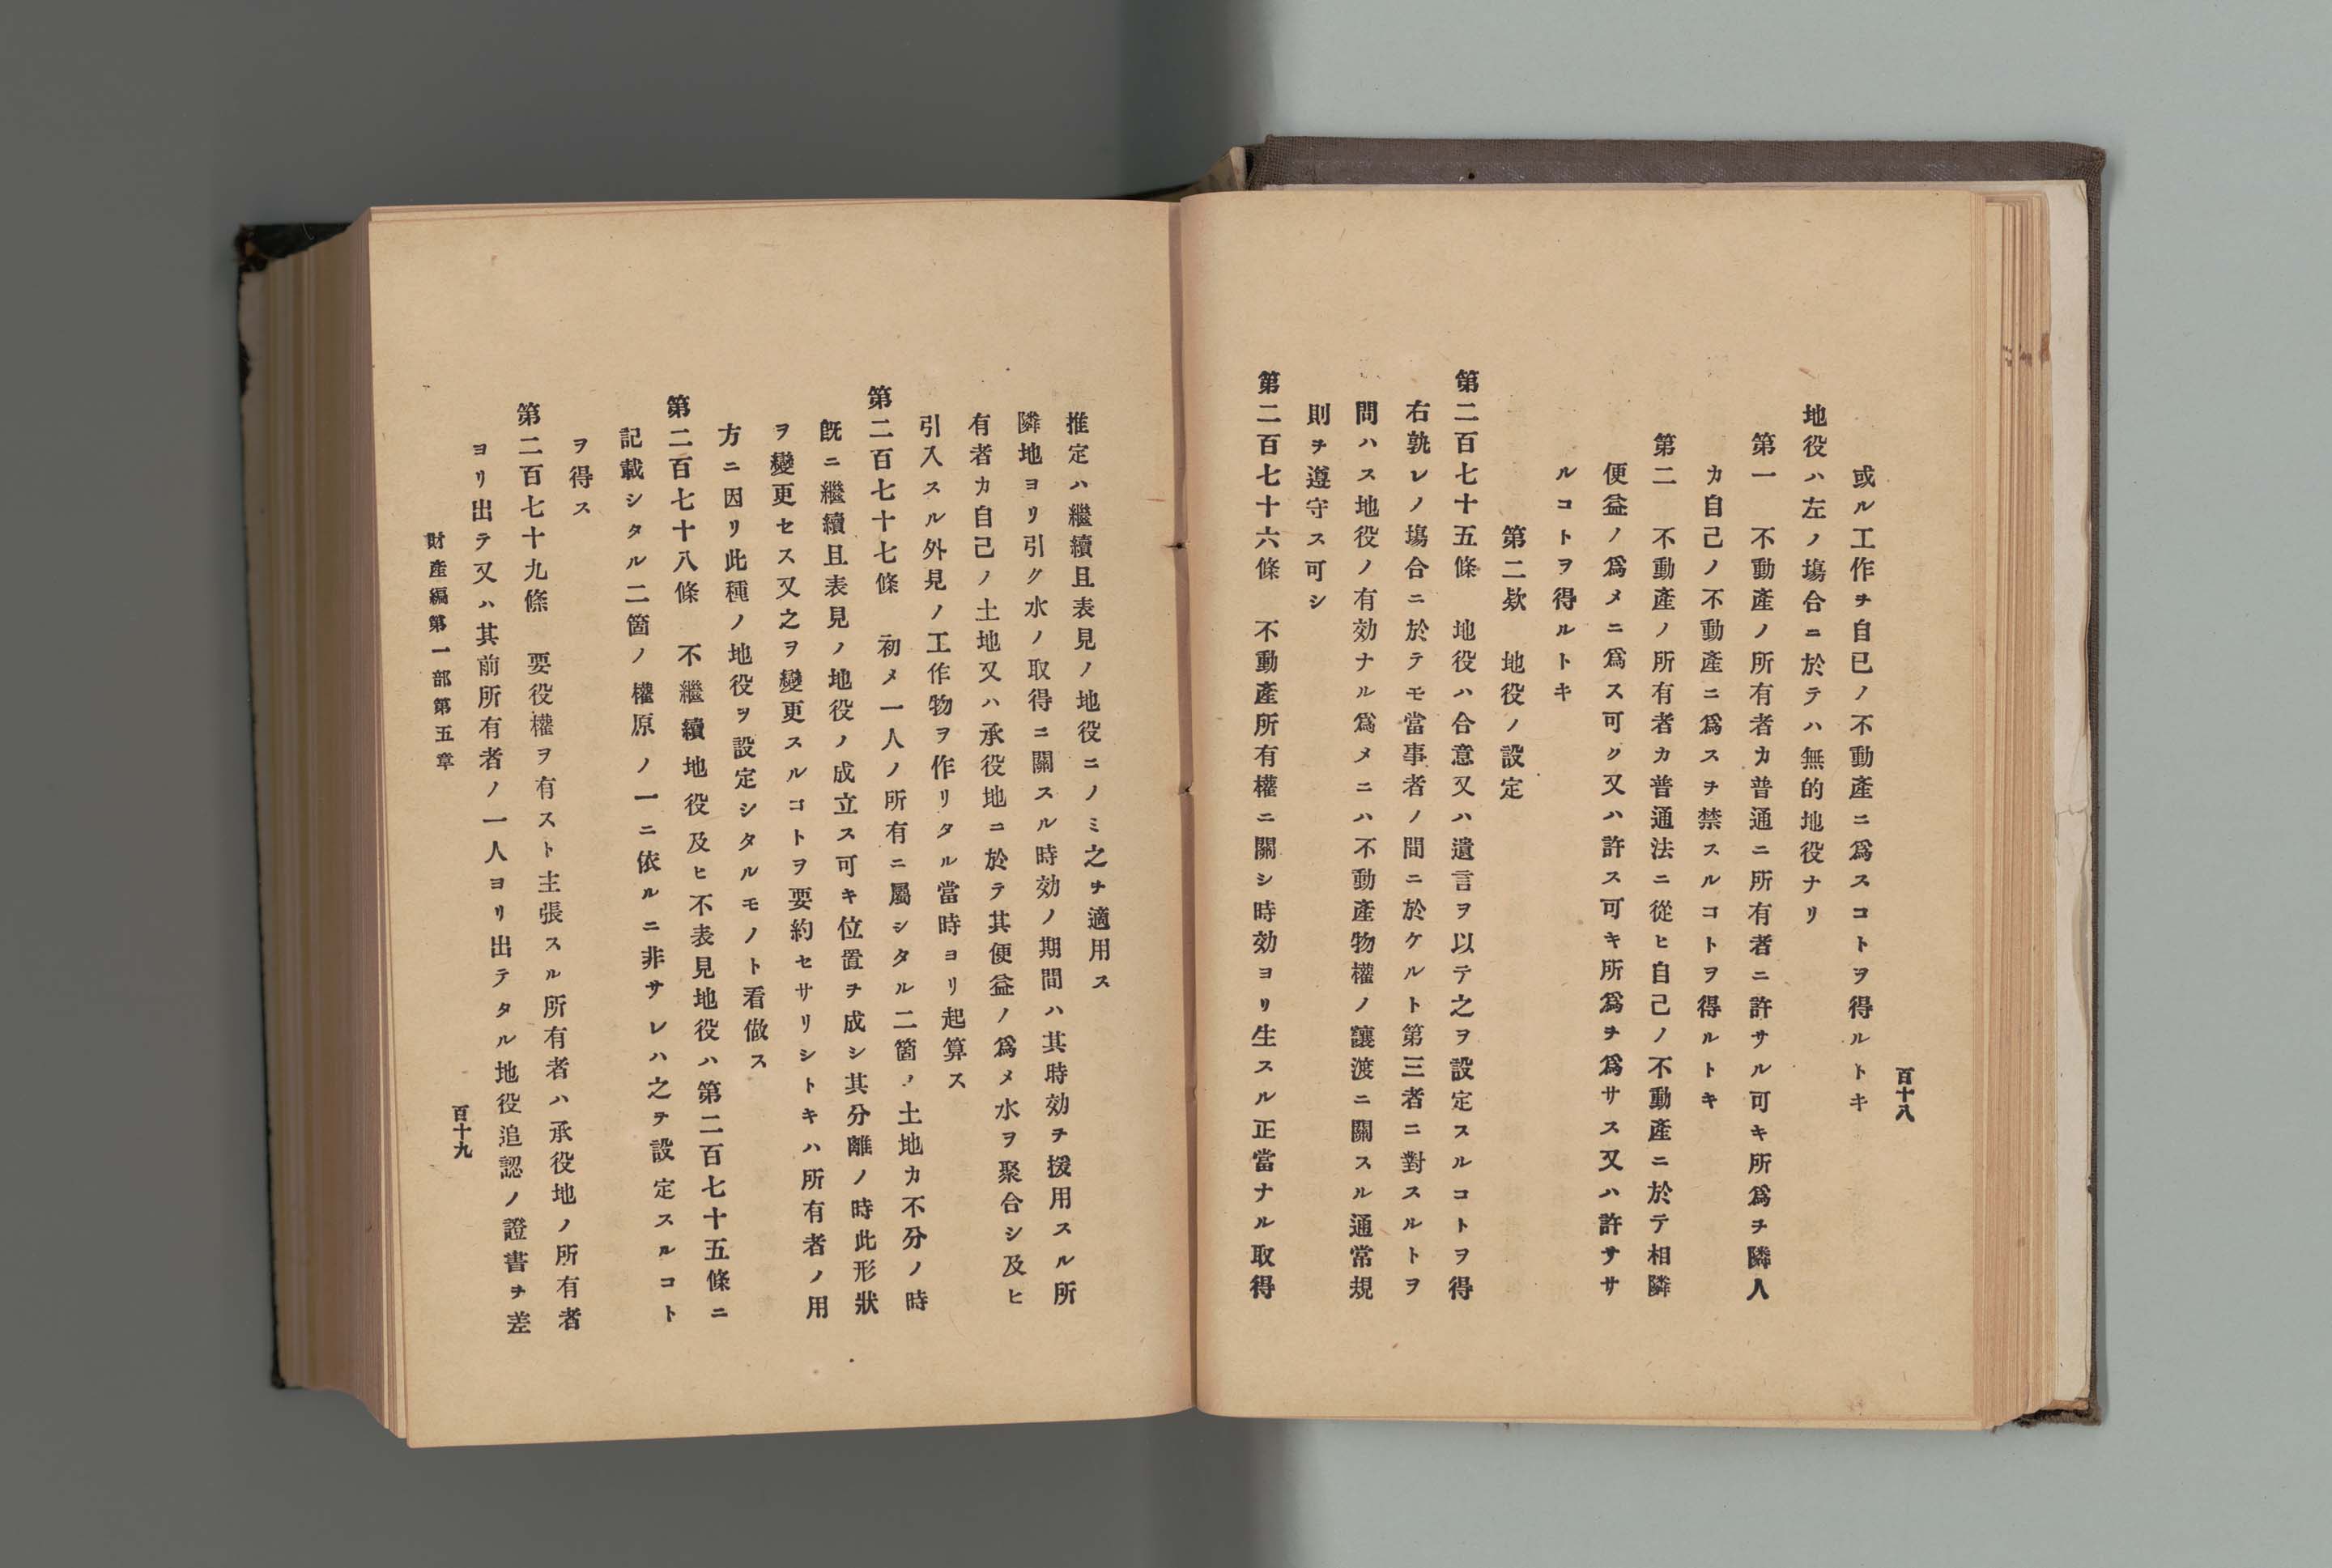 百十八
或ル工作ヲ自己ノ不動產ニ爲スコトヲ得ルトキ
地役ハ左ノ塲合ニ於テハ無的地役ナリ
第一　不動產ノ所有者カ普通ニ所有者ニ許サル可キ所爲ヲ隣人
カ自己ノ不動產ニ爲スヲ禁スルコトヲ得ルトキ
第二　不動產ノ所有者カ普通法ニ從ヒ自己ノ不動產ニ於テ相隣
便益ノ爲メニ爲ス可ク又ハ許ス可キ所爲ヲ爲サス又ハ許ササ
ルコトヲ得ルトキ
第二欵　地役ノ設定
第二百七十五條　地役ハ合意又ハ遺言ヲ以テ之ヲ設定スルコトヲ得
右孰レノ塲合ニ於テモ當事者ノ間ニ於ケルト第三者ニ對スルトヲ
問ハス地役ノ有効ナル爲メニハ不動產物權ノ讓渡ニ關スル通常規
則ヲ遵守ス可シ
第二百七十六條　不動產所有權ニ關シ時効ヨリ生スル正當ナル取得
推定ハ繼續且表見ノ地役ニノミ之ヲ適用ス
隣地ヨリ引ク水ノ取得ニ關スル時効ノ期間ハ其時効ヲ援用スル所
有者カ自己ノ土地又ハ承役地ニ於テ其便益ノ爲メ水ヲ聚合シ及ヒ
引入スル外見ノ工作物ヲ作リタル當時ヨリ起算ス
第二百七十七條　初メ一人ノ所有ニ屬シタル二箇ノ土地カ不分ノ時
旣ニ繼續且表見ノ地役ノ成立ス可キ位置ヲ成シ其分離ノ時此形狀
ヲ變更セス又之ヲ變更スルコトヲ要約セサリシトキハ所有者ノ用
方ニ因リ此種ノ地役ヲ設定シタルモノト看做ス
第二百七十八條　不繼續地役及ヒ不表見地役ハ第二百七十五條ニ
記載シタル二箇ノ權原ノ一ニ依ルニ非サレハ之ヲ設定スルコト
ヲ得ス
第二百七十九條　要役權ヲ有スト主張スル所有者ハ承役地ノ所有者
ヨリ出テ又ハ其前所有者ノ一人ヨリ出テタル地役追認ノ證書ヲ差
財產編第一部第五章
百十九